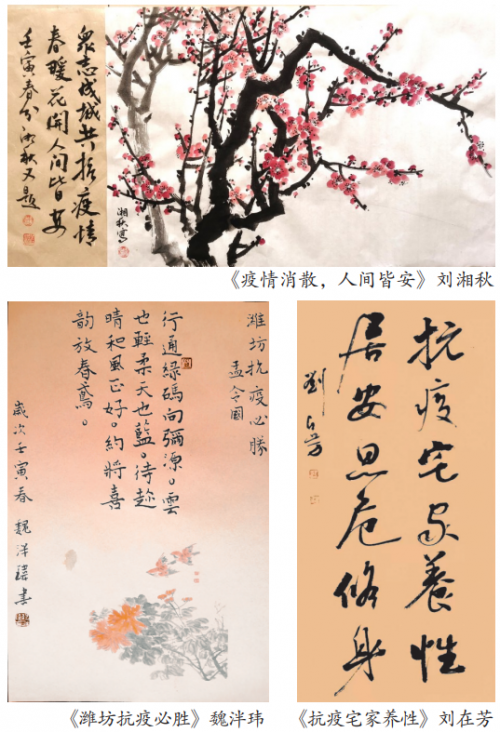 眾志成城共抗疫情
春暖花開人间皆安
壬寅春分湘秋又題
湘秋寫
《疫情消散，人间皆安》刘湘秋
濰坊抗疫必勝
孟令國
行通綠碼向彌源。雲
也輕柔天也藍。待趁
晴和風正好。約將喜
韻放春鳶。
歲次壬寅春 魏泮瑋書
《潍坊抗疫必胜》魏泮玮
抗疫宅家養性
居安思危修身
劉在芳
《抗疫宅家养性》刘在芳